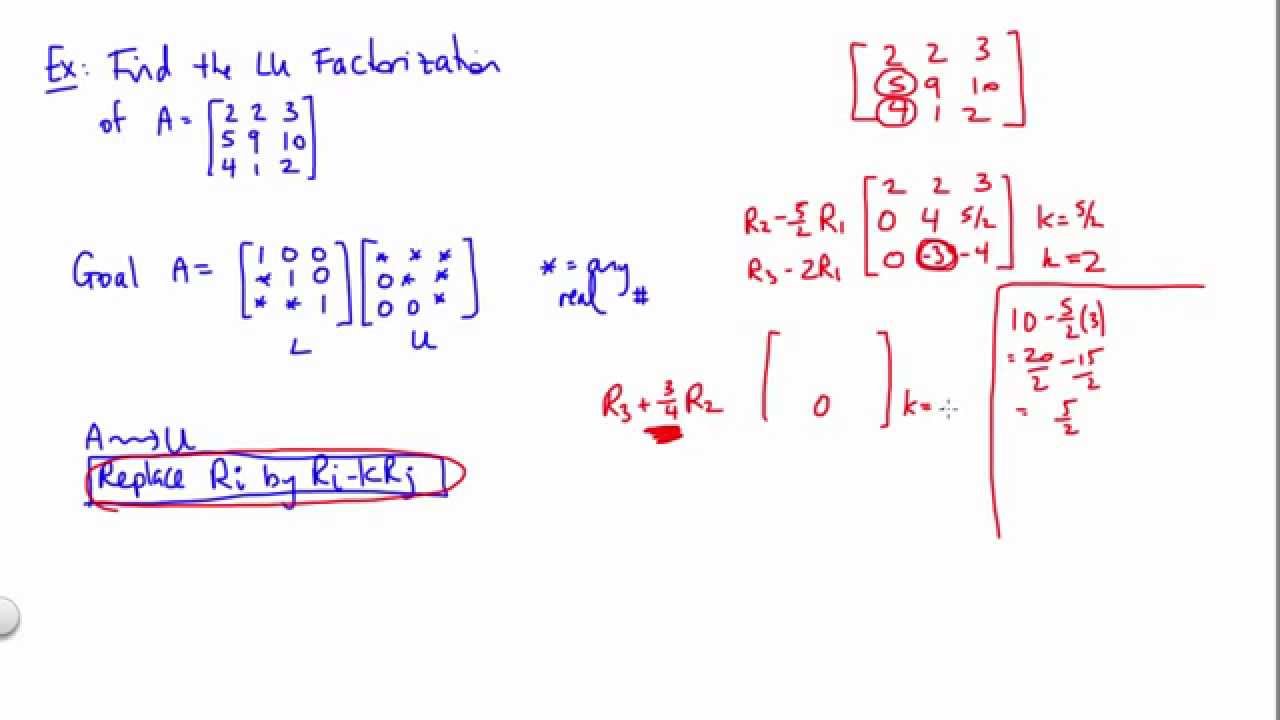 Ex: Find the LU Factorization
of A = [2 2 3
5 9 10
4 1 2]
Goal A = [1 0 0] [* * *]
[* 1 0] [0 * *]
[* * 1] [0 0 *]
L U
* = any
real #
A ⇝ U
Replace Ri by Ri-kRj
[2 2 3
5 9 10
4 1 2]
[2 2 3
R2 - 5/2 R1 0 4 5/2 k = 5/2
R3 - 2R1 0 -3 -4] k = 2
10 - 5/2(3)
= 20/2 - 15/2
= 5/2
R3 + 3/4 R2 [ 0 ] k = -